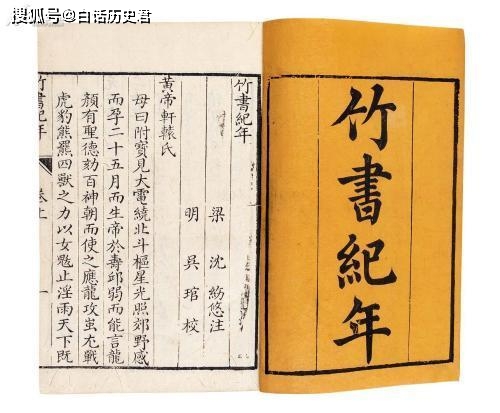 搜狐号@白话历史君
竹書紀年
竹書紀年
梁 沈約悠注
明 吳琯校
黄帝軒轅氏
母曰附寶見大電繞北斗樞星光照郊野感
而孕二十五月而生帝於壽邱弱而能言龍
顏有聖德劾百神朝而使之應龍攻蚩尤戰
虎豹熊羆四獸之力以女魃止淫雨天下既
竹書紀年
卷上
一